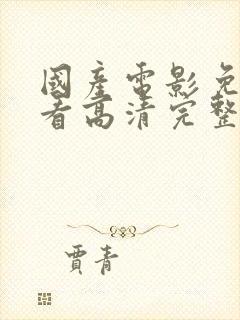 國產電影免
看高清完整
賈青